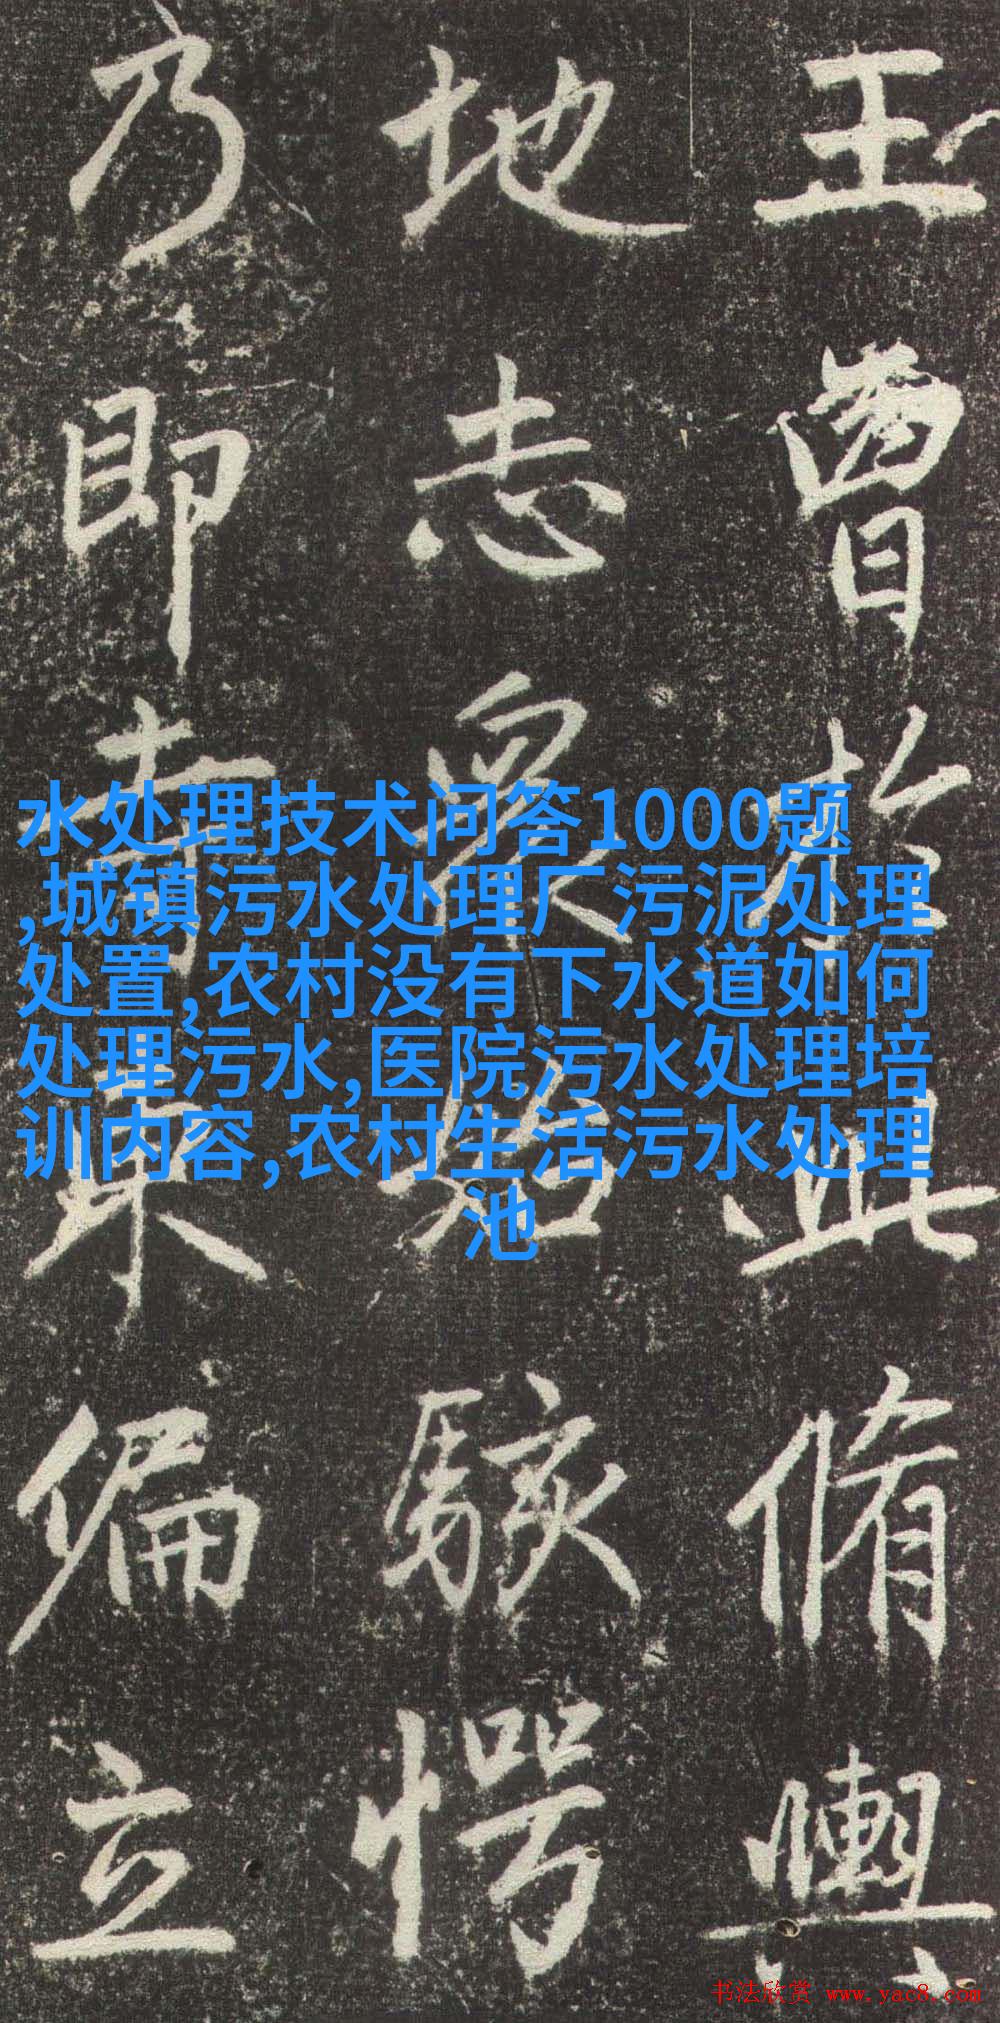 王曾於此脩輿
地志衆始駭愕
乃即寺東偏立
水处理技术问答1000题
,城镇污水处理厂污泥处理
处置,农村没有下水道如何
处理污水,医院污水处理培
训内容,农村生活污水处理
池
书法欣赏 www.yac8.com